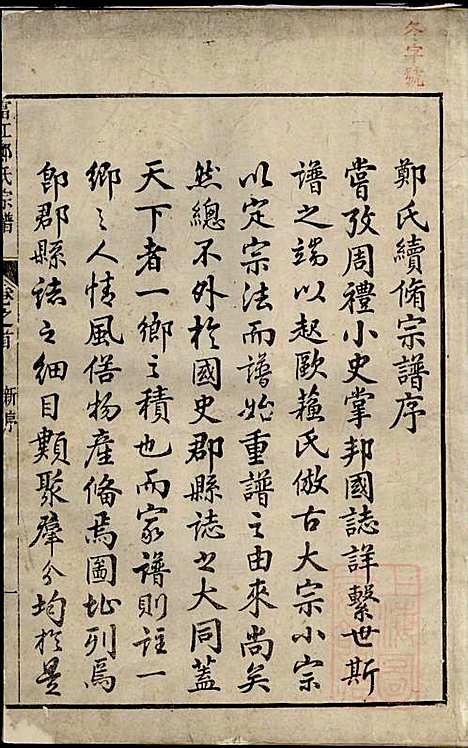 冬字號
鄭氏續脩宗譜序
嘗攷周禮小史掌邦國誌詳繫世斯
譜之端以起歐蘓氏倣古大宗小宗
以定宗法而譜始重譜之由來尚矣
然總不外於國史郡縣誌之大同蓋
天下者一鄉之積也而家譜則註一
鄉之人情風俗物產脩焉圖址列焉
即郡縣誌之細目類聚羣分均於是
江鄭氏宗譜
卷之首
新序
一